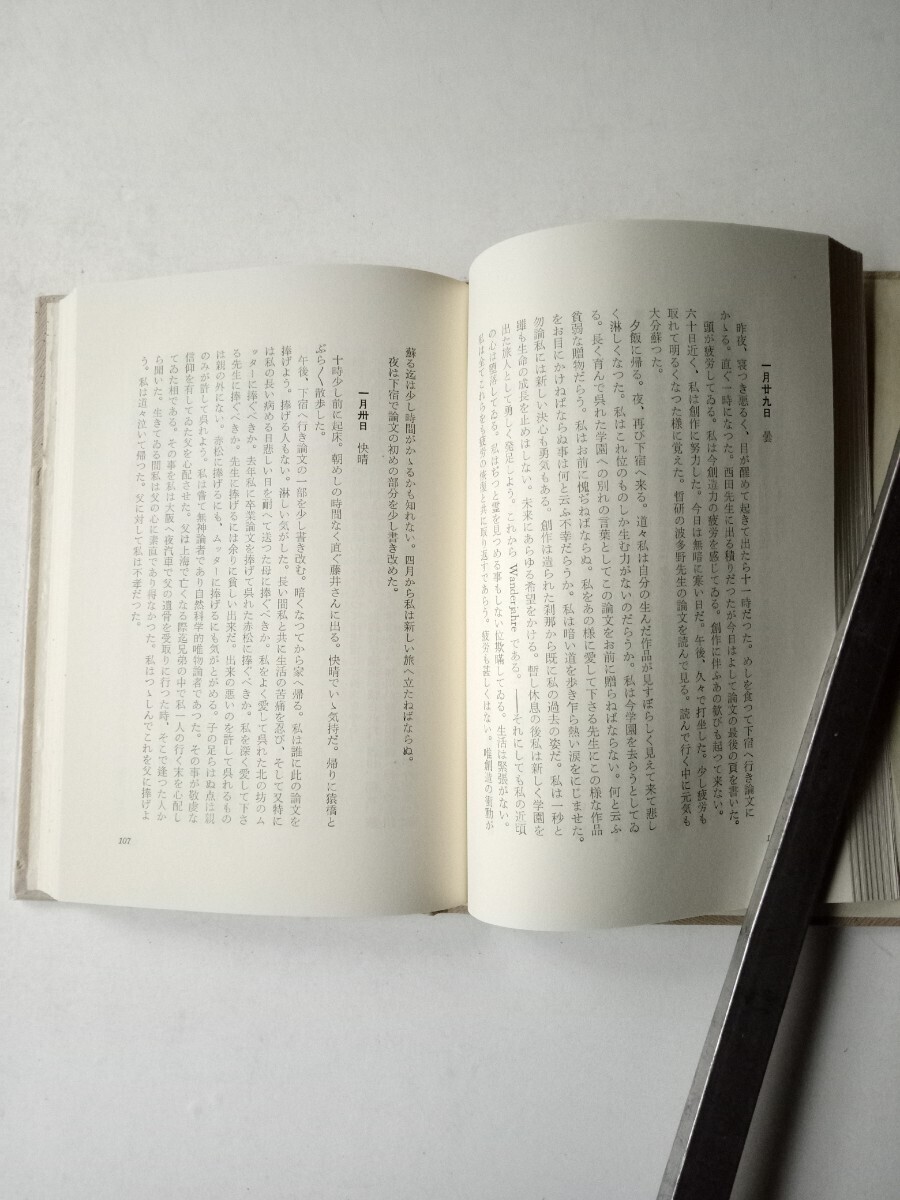 一月廿九日　曇
昨夜、寝つき悪るく、目が醒めて起きて出たら十一時だつた。めしを食つて下宿へ行き論文に
かゝる。直ぐ一時になつた。西田先生に出る積りだつたが今日はよして論文の最後の頁を書いた。
頭が疲労してゐる。私は今創造力の疲労を感じてゐる。創作に伴ふあの歓びも起つて来ない。
六十日近く、私は創作に努力した。今日は無暗に寒い日だ。午後、久々で打坐した。少し疲労も
取れて明るくなつた様に覚えた。哲研の波多野先生の論文を読んで見る。読んで行く中に元気も
大分蘇つた。
夕飯に帰る。夜、再び下宿へ来る。道々私は自分の生んだ作品が見すぼらしく見えて来て悲し
く淋しくなつた。私はこれ位のものしか生む力がないのだらうか。私は今学園を去らうとしてゐ
る。長く育んで呉れた学園への別れの言葉としてこの論文をお前に贈らねばならない。何と云ふ
貧弱な贈物だらう。私はお前に愧ぢねばならぬ。私をあの様に愛して下さる先生にこの様な作品
をお目にかけねばならぬ事は何と云ふ不幸だらうか。私は暗い道を歩き乍ら熱い涙をにじませた。
勿論私には新しい決心も勇気もある。創作は造られた刹那から既に私の過去の姿だ。私は一秒と
雖も生命の成長を止めはしない。未来にあらゆる希望をかける。暫し休息の後私は新しく学園を
出た旅人として勇しく発足しよう。これから Wanderjahre である。――それにしても私の近頃
の心は堕落してゐる。私はぢつと霊を見つめる事もしない位欺瞞してゐる。生活は緊張がない。
私は来てこれらをも疲労の恢復と共に取り返すであらう。疲労も甚しくはない。唯創造の衝動が
蘇る迄は少し時間がかゝるかも知れない。四月から私は新しい旅へ立たねばならぬ。
夜は下宿で論文の初めの部分を少し書き改めた。
一月卅日　快晴
十時少し前に起床。朝めしの時間なく直ぐ藤井さんに出る。快晴でいゝ気持だ。帰りに猿橋と
ぶら〱散歩した。
午後、下宿へ行き論文の一部を少し書き改む。暗くなつてから家へ帰る。私は誰に此の論文を
捧げよう。捧げる人もない。淋しい気がした。長い間私と共に生活の苦痛を忍び、そして又特に
は私の長い病める日悲しい日を耐へて送つた母に捧ぐべきか。私をよく愛して呉れた北の坊のム
ッターに捧ぐべきか。去年私に卒業論文を捧げて呉れた赤松に捧ぐべきか。私を深く愛して下さ
る先生に捧ぐべきか。先生に捧げるには余りに貧しい出来だ。出来の悪いのを許して呉れるもの
は親の外にない。赤松に捧げるにも、ムッターに捧げるにも気がとがめる。子の足らはぬ点は親
のみが許して呉れよう。私は嘗て無神論者であり自然科学的唯物論者であつた。その事が敬虔な
信仰を有してゐた父を心配させた。父は上海で亡くなる際迄兄弟の中で私一人の行く末を心配し
てゐた相である。その事を私は大阪へ夜汽車で父の遺骨を受取りに行つた時、そこで逢つた人か
ら聞いた。生きてゐる間私は父の心に素直であり得なかつた。私はつゝしんでこれを父に捧げよ
う。私は道々泣いて帰つた。父に対して私は不孝だつた。
107